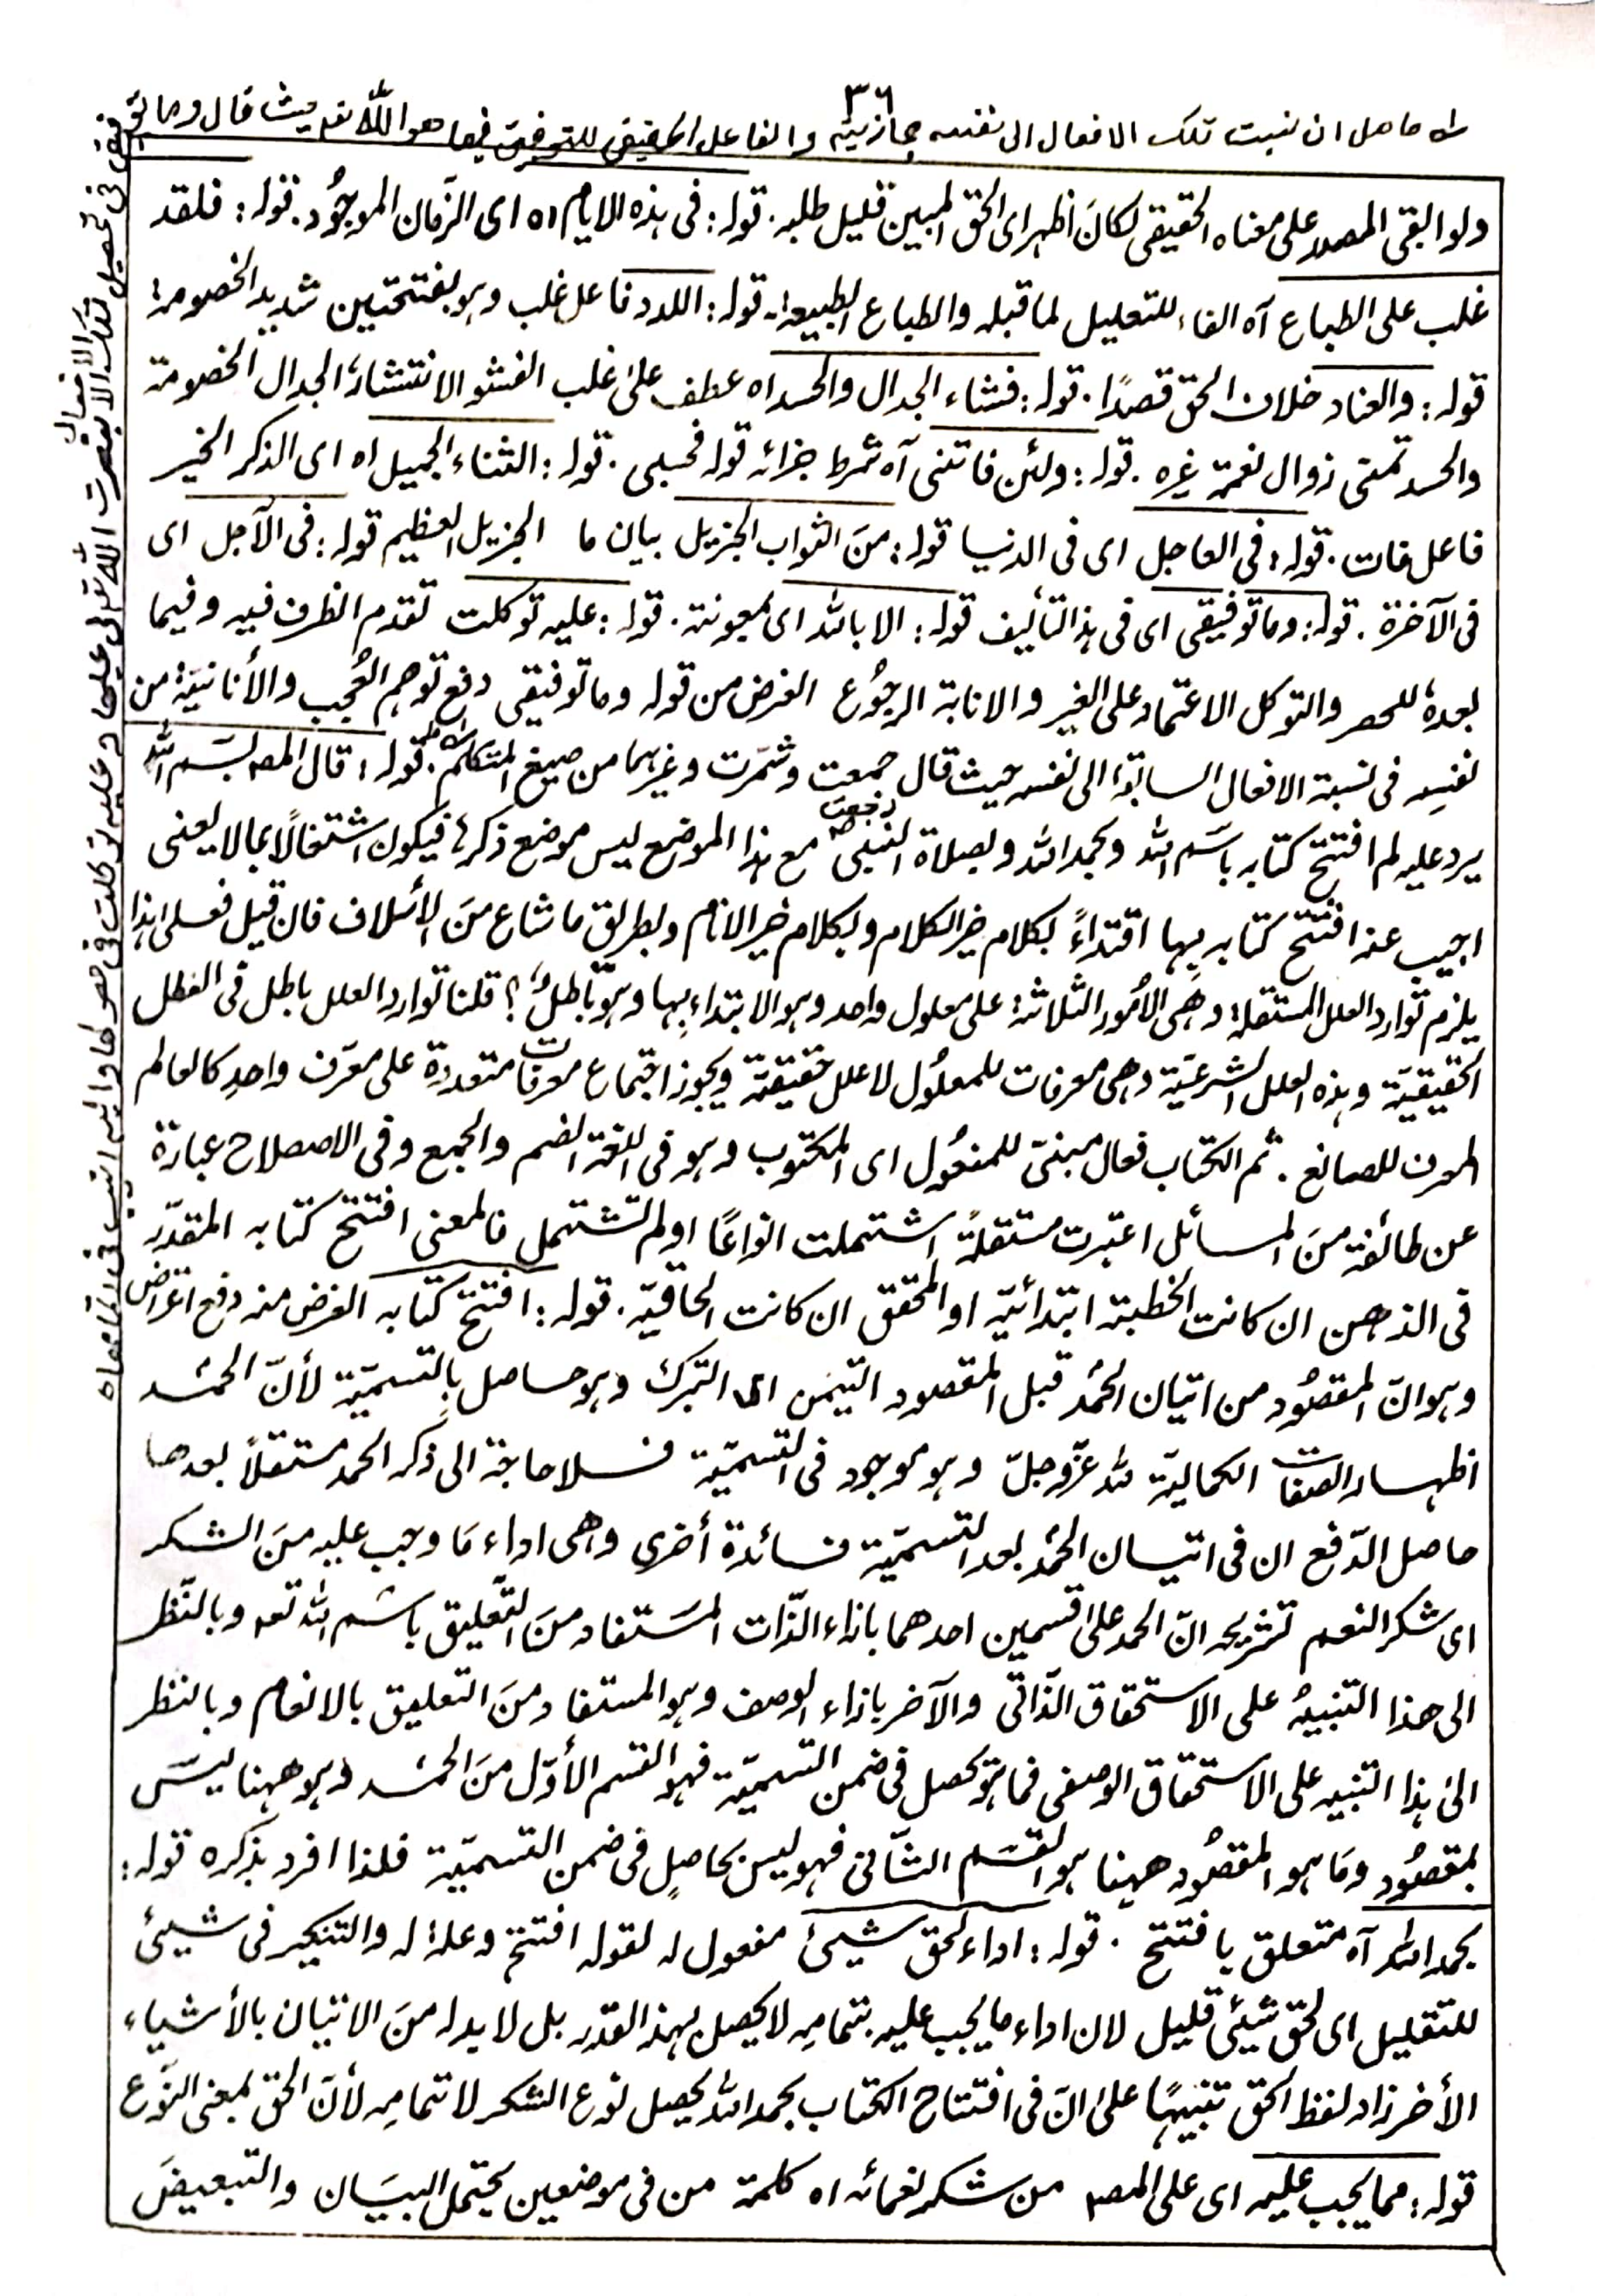 ٣٦
له حاصل ان نسبت تلك الافعال الى نفسه مجازية والفاعل الحقيقى للتوفيق فيها هو الله تعه حيث قال وما توفيقى
ولو ابقى المصدر على معناه الحقيقى لكانَ اظهر اى الحق المبين قليل طلبه. قوله: فى هذه الايام اه اى الزّمان الموجُود. قوله: فلقد
غلب على الطباع آه الفاء للتعليل لما قبله والطباع الطبيعة. قوله: اللدد فاعل غلب وهو بفتحتين شديد الخصومة
قوله: والعناد خلاف الحق قصدًا. قوله: فشاء الجدال والحسد اه عطف علىٰ غلب الفشو الانتشار، الجدال الخصومة
والحسد تمنى زوال نعمة غيره. قوله: ولئن فاتنى آه شرط جزائه قوله فحسبى. قوله: الثناء الجميل اه اى الذكر الخير
فاعل فات. قوله: فى العاجل اى فى الدنيا قوله: منَ الثواب الجزيل بيان ما الجزيل العظيم قوله: فى الآجل اى
فى الآخرة. قوله: وما توفيقى اى فى هذا التأليف قوله: الا بالله اى بمعونته. قوله: عليه توكلت تقدم الظرف فيه وفيما
بعدهٗ للحصر والتوكل الاعتماد على الغير والانابة الرجُوع الغرض من قوله وما توفيقى دفع توهم العُجب والأنانيَة من
نفسِه فى نسبة الافعال السابقة الى نفسه حيث قال جمعت وشمّرت وغيرهما من صيغ المتكلم. قوله: قال المصه بسَم الله
يرد عليه لم افتتح كتابه باسَم الله وبحمد الله وبصلاة النبى مع هذا الموضع ليس موضع ذكرها فيكون اشتغالًا بما لا يعنى
اجيب عنه افتتح كتابه بِها اقتداءً بكلام خير الكلام وبكلام خير الانام وبطريق ما شاع منَ الأسلاف فان قيل فعلى هذا
يلزم توارد العلل المستقلة وهِى الأمُور الثلاثة على معلول واحد وهو الابتداء بِها وهوَ باطلٌ؟ قلنا توارد العلل باطل فى العلل
الحقيقيّة وهذه العلل الشرعيّة وهى معرفات للمعلُول لا علل حقيقيّة ويجوز اجتماع معرفات متعددة على معرّف واحدٍ كالعالم
المعرف للصانع. ثم الكتاب فعال مبنىّ للمفعُول اى المكتوب وهو فى اللغة الضم والجمع وفى الاصطلاح عبارة
عن طائفة منَ المسائل اعتبرت مستقلةً اشتملت انواعًا او لم تشتمل فالمعنى افتتح كتابه المقدّر
فى الذهن ان كانت الخطبة ابتدائيّة او المحقق ان كانت الحاقيّة. قوله: افتتح كتابه الغرض منه دفع اعتراض
وهو انّ المقصُود من اتيان الحمُد قبل المقصود التيمّن اى التبرك وهو حاصل بِالتسميّة لأنّ الحمُد
اظهار الصفات الكماليّة لله عزّ وجلّ وهو موجود فى التسميّة فلا حاجة الى ذكر الحمد مستقلاً بعدها
حاصل الدّفع ان فى اتيان الحمُد بعد التسميّة فائدة أخرى وهى اداء مَا وجب عليه منَ الشكر
اى شكر النعم تشريحه انّ الحمد علىٰ قسمين احدهما بازاء الذّات المسَتفاد منَ التّعليق باسَم الله تعه وبالنّظر
الى هذا التنبيهُ على الاستحقاق الذّاتى والآخر بازاء الوصف وهو المستفاد منَ التعليق بالانعام وبالنظر
الىٰ هذا التنبيه على الاستحقاق الوصفى فما هو تحصل فى ضمن التسميّة فهو القسم الأوّل منَ الحمُد وهو ههنا ليسَ
بمقصُود ومَا هو المقصُود ههنا هو القسَم الثّانى فهو ليس بحاصلٍ فى ضمن التسميّة فلذا افرد بذكره قوله:
بحمد الله آه متعلق بافتتح. قوله: اداء لحق شيئ مفعول له لقوله افتتح وعلة له والتنكير فى شيئ
للتقليل اى لحق شيئى قليل لان اداء ما يجب عليه بتمامِه لا يحصل بهذ القدّر بل لا بد له منَ الاتيان بالأشياء
الأخر زاد لفظ الحق تنبيهًا علىٰ انّ فى افتتاح الكتاب بحمد الله يحصل نوع الشكر لا تمامِه لأنّ الحق بمعنى النوّع
قوله: مما يجب عليه اى على المصه من شكر نعمائه اه كلمة من فى موضعين يحتمل البيَان والتبعيض
فى تحصيل تلك الافعال الا بنصرت الله تعالى عليها وعليه توكلت فى حصولها واليه انيب فى اتمامها اه